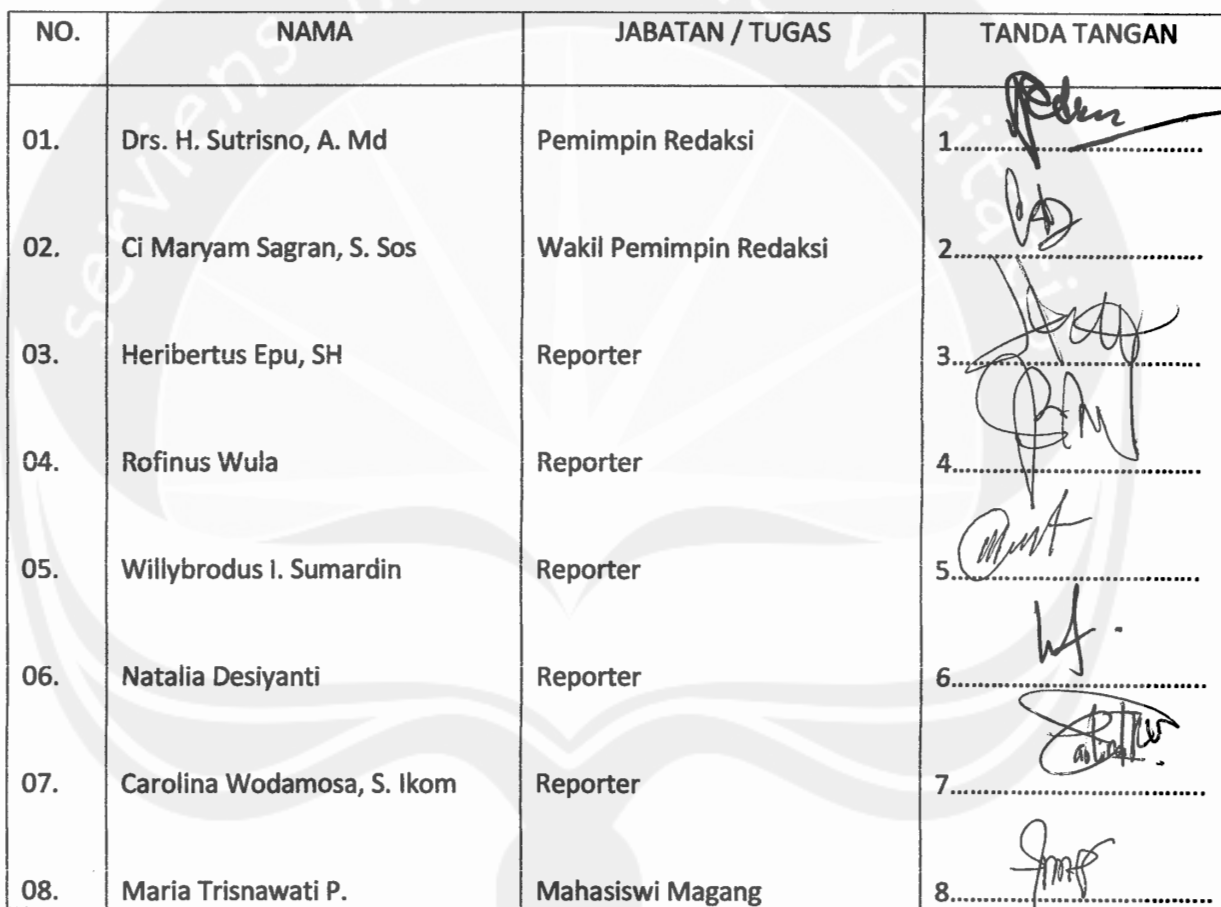 NO. NAMA JABATAN / TUGAS TANDA TANGAN
01. Drs. H. Sutrisno, A. Md Pemimpin Redaksi 1
02. Ci Maryam Sagran, S. Sos Wakil Pemimpin Redaksi 2
03. Heribertus Epu, SH Reporter 3
04. Rofinus Wula Reporter 4
05. Willybrodus I. Sumardin Reporter 5
06. Natalia Desiyanti Reporter 6
07. Carolina Wodamosa, S. Ikom Reporter 7
08. Maria Trisnawati P. Mahasiswi Magang 8
serviens
veritatis